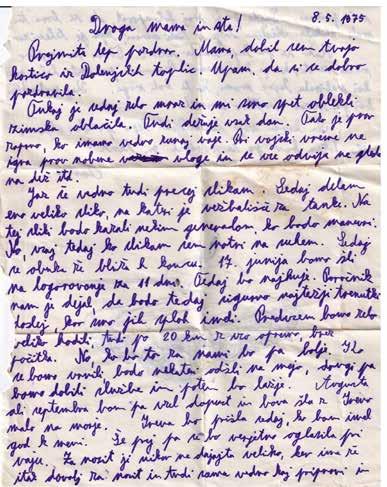 8.5.1975
Draga mama in ata!
Prejmita lep pozdrav. Mama, dobil sem tvojo
kartico iz Dolenjskih toplic. Upam, da si se dobro
pozdravila.
Tukaj je sedaj zelo mraz in mi smo spet oblekli
zimska oblačila. Tudi dežuje vsak dan. Tako je prav
zoprno, ko imamo vedno zunaj vaje. Pri vojski vreme ne
igra prav nobene vloge in se vse odvija ne glede
na dež itd.
Jaz še vedno tudi precej slikam. Sedaj delam
eno veliko sliko, na kateri je vežbališče za tanke. Na
tej sliki bodo kazali nekim generalom, ko bodo manevri.
No, vsaj tedaj ko slikam sem notri na suhem. Sedaj
se obuka že bliža h koncu. 17. junija bomo šli
na logorovanje za 11 dni. Tedaj bo najhuje. Poročnik
nam je dejal, da bodo tedaj sigurno najtežji trenutki
kar smo jih sploh imeli. Predvsem bomo zelo
veliko hodili, tudi po 20 km z vso opremo, brez
počitka. No, ko bo to za nami bo pa bolje. Ko
se bomo vrnili bodo nekateri odšli na mejo, drugi pa
bomo dobili službe in potem bo lažje. Avgusta
ali septembra bom pa vzel dopust in bova šla z Ireno
malo na morje. Irena bo prišla sedaj, ko bom imel
god k meni. Še prej pa se bo verjetno oglasila pri
vaju. Za nosit ji nikar ne dajajta veliko, ker ima že
itak dovolj za nosit in tudi sama vedno kaj pripravi in